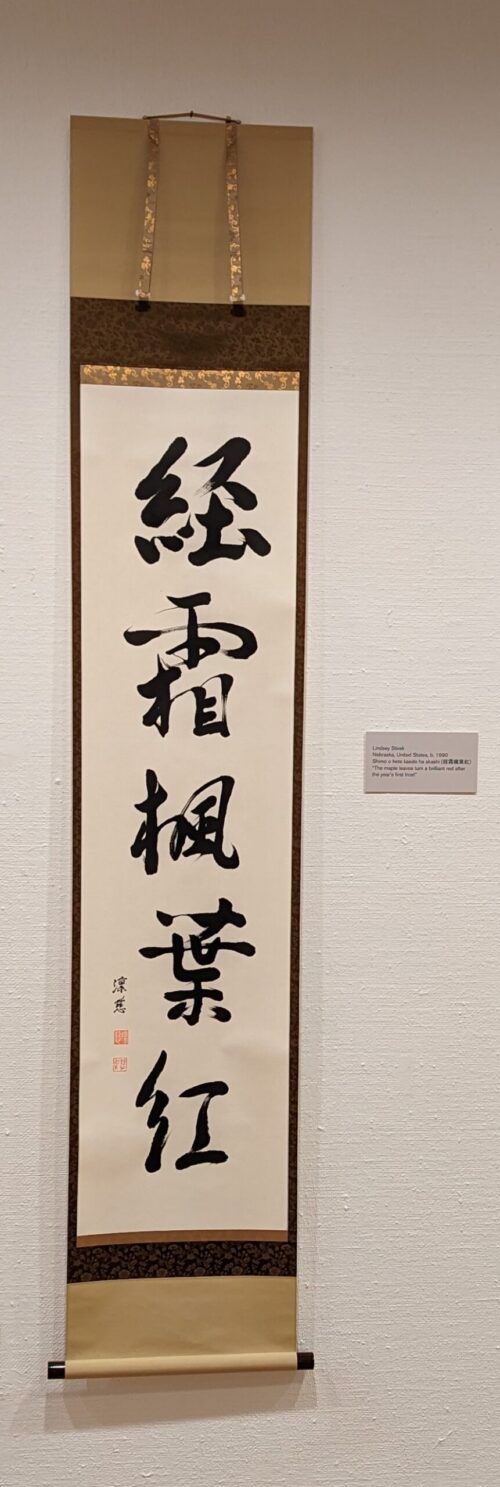 経霜楓葉紅
凛慈
Lindsey Stirek
Nebraska, United States, b. 1990
Shimo o hete kaede ha akashi (経霜楓葉紅)
"The maple leaves turn a brilliant red after
the year's first frost"